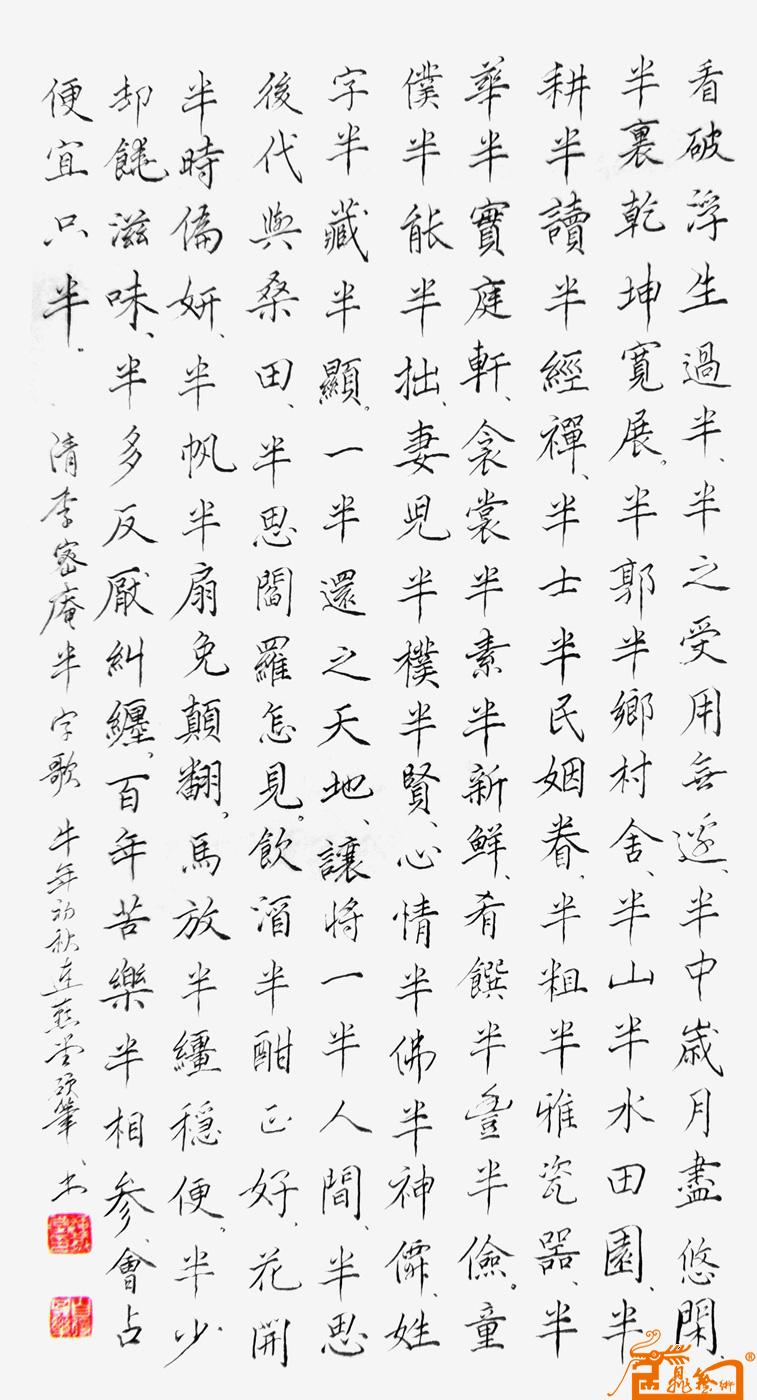 看破浮生過半、半之受用無邊、半中歲月盡悠閑、
半裏乾坤寬展。半郭半鄉村舍、半山半水田園、半
耕半讀半經禪、半士半民姻眷、半粗半雅瓷器、半
華半實庭軒、衾裳半素半新鮮、肴饌半豐半儉。童
僕半能半拙、妻兒半樸半賢、心情半佛半神僊、姓
字半藏半顯。一半還之天地、讓將一半人間、半思
後代與桑田、半思閻羅怎見。飲酒半酣正好、花開
半時偏妍、半帆半扇免顛翻。馬放半繮穩便。半少
却饒滋味、半多反厭糾纏、百年苦樂半相參、會占
便宜只半。清李密庵半字歌 牛年初秋連燕堂碩筆書